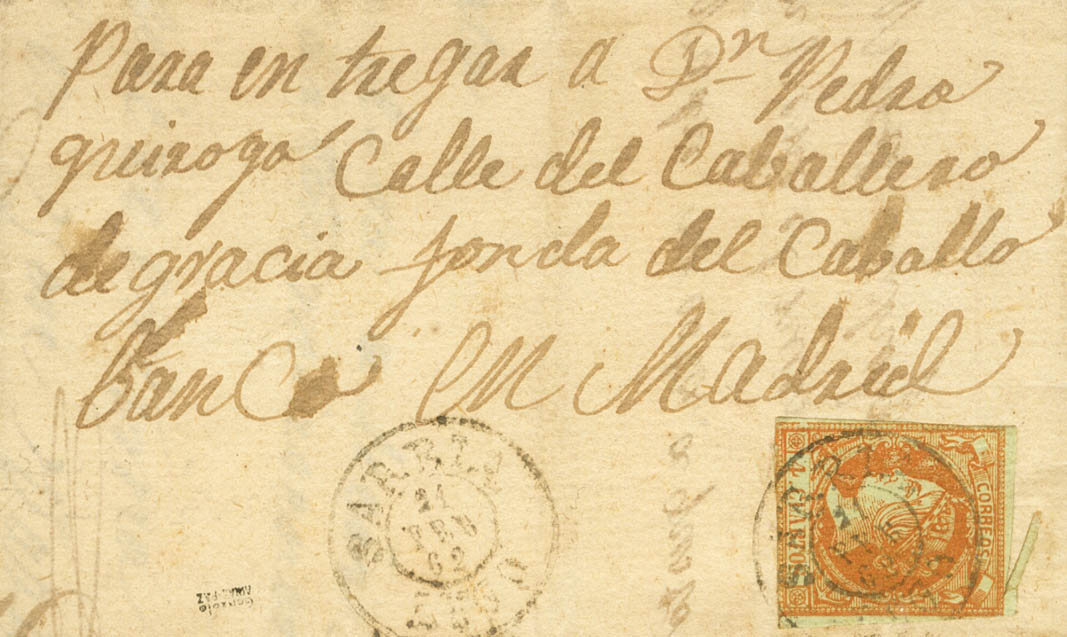 Para en tregar a Dn Pedro
quiroga Calle del Caballero
de gracia fonda del Caballo
banCo en Madrid
SARRIA
21
FEB
62
LUGO
CORREOS